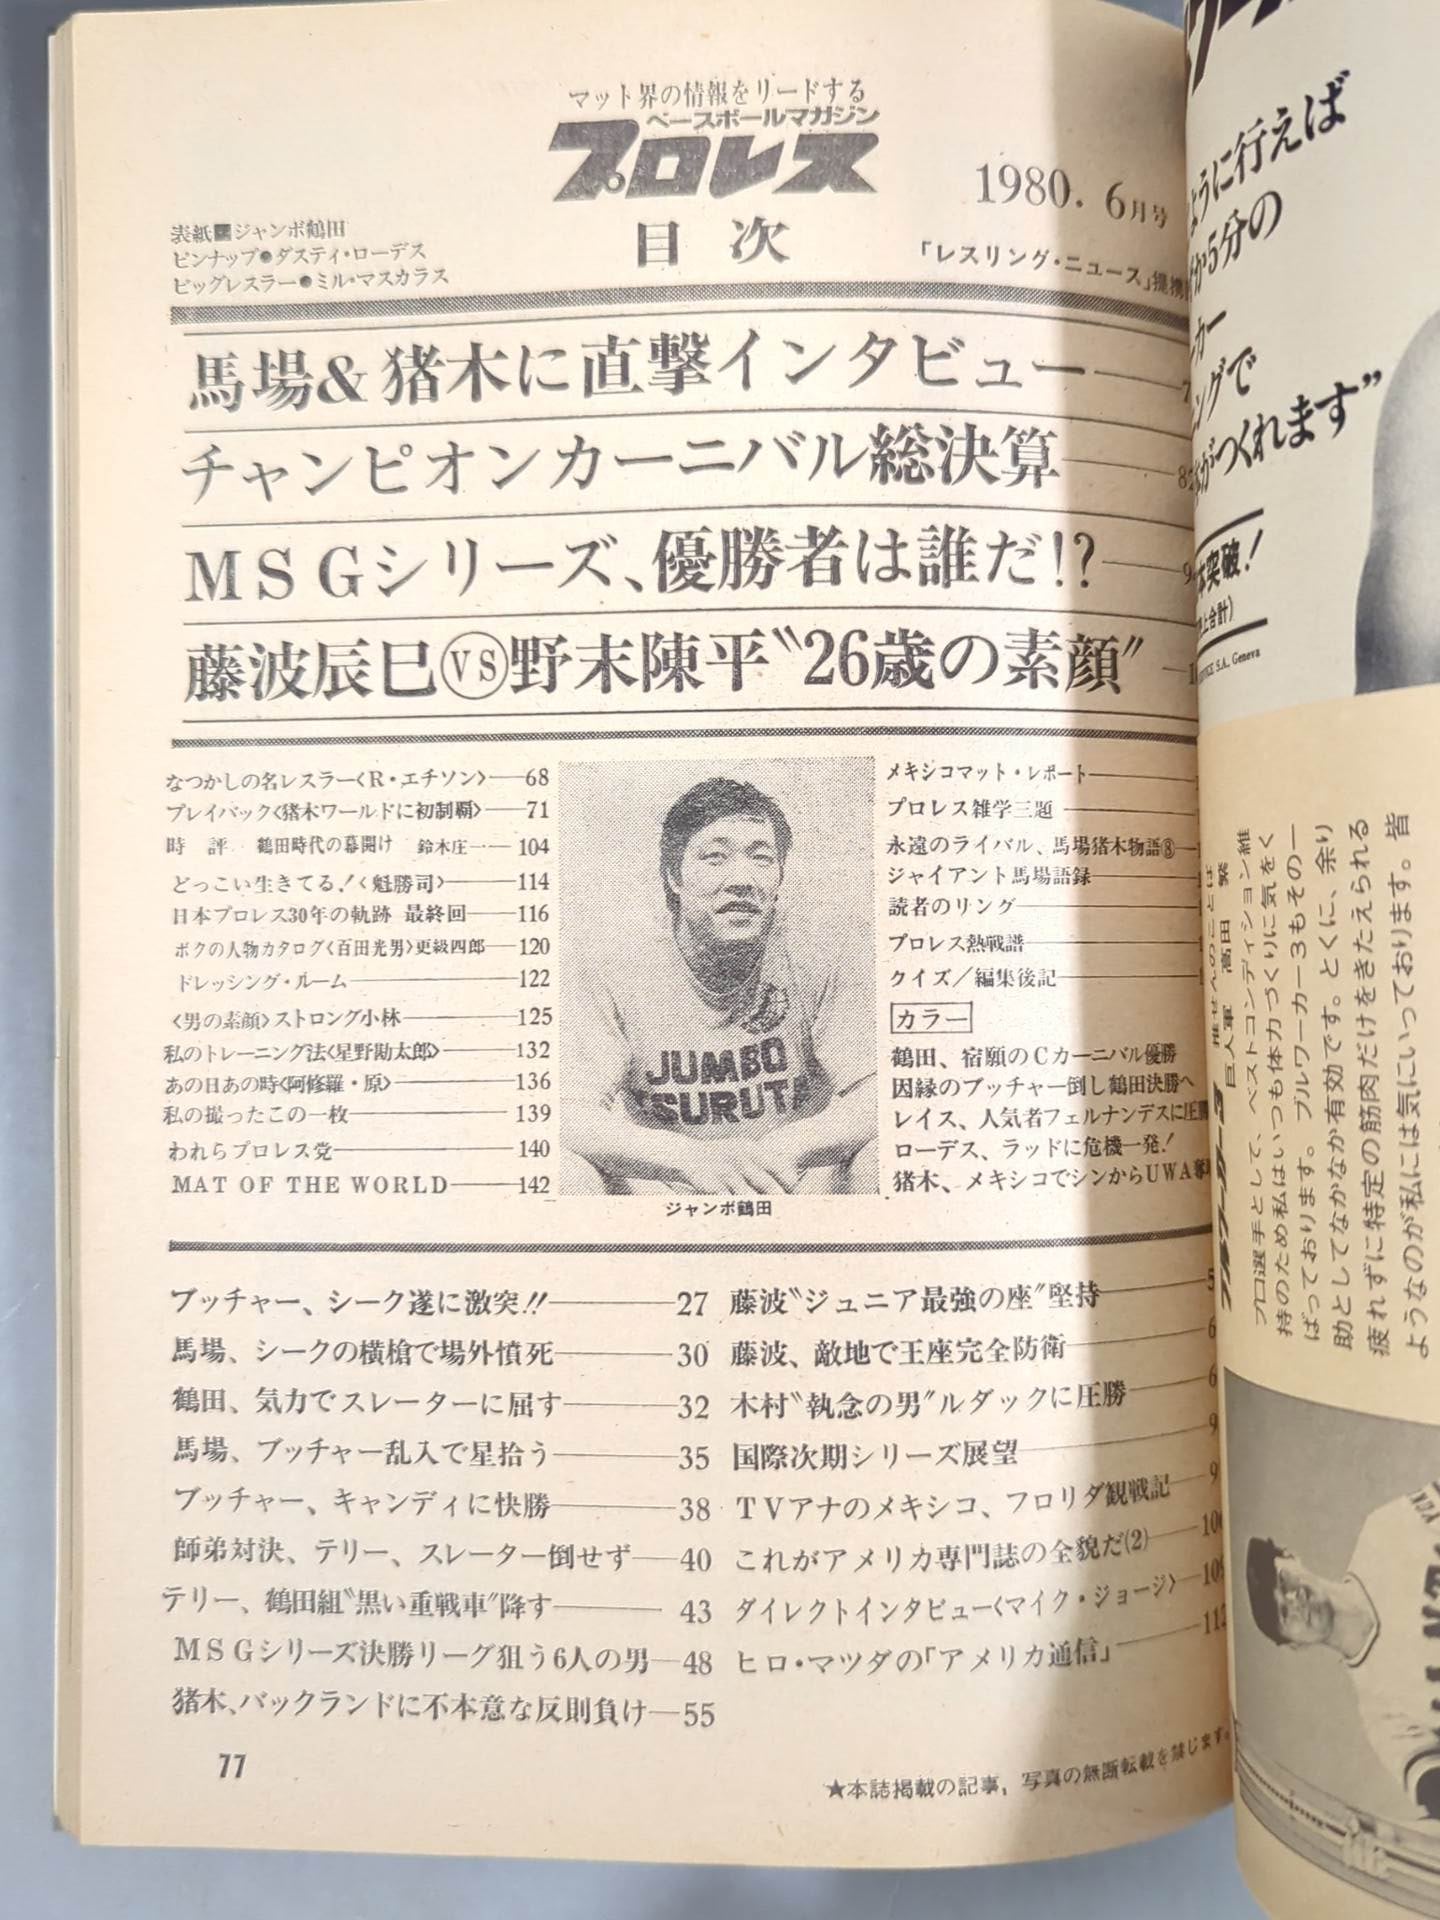 マット界の情報をリードする
ベースボールマガジン
プロレス
1980. 6月号
目次
表紙●ジャンボ鶴田
ピンナップ●ダスティ・ローデス
ビッグレスラー●ミル・マスカラス
「レスリング・ニュース」提携
馬場&猪木に直撃インタビュー
チャンピオンカーニバル総決算
MSGシリーズ、優勝者は誰だ!?
藤波辰巳VS野末陳平〝26歳の素顔〟
なつかしの名レスラー〈R・エチソン〉―68
プレイバック〈猪木ワールドに初制覇〉―71
時評 鶴田時代の幕開け 鈴木庄一―104
どっこい生きてる!〈魁勝司〉―114
日本プロレス30年の軌跡 最終回―116
ボクの人物カタログ〈百田光男〉更級四郎―120
ドレッシング・ルーム―122
〈男の素顔〉ストロング小林―125
私のトレーニング法〈星野勘太郎〉―132
あの日あの時〈阿修羅・原〉―136
私の撮ったこの一枚―139
われらプロレス党―140
MAT OF THE WORLD―142
JUMBO
TSURUTA
ジャンボ鶴田
メキシコマット・レポート
プロレス雑学三題
永遠のライバル、馬場猪木物語⑧
ジャイアント馬場語録
読者のリング
プロレス熱戦譜
クイズ/編集後記
カラー
鶴田、宿願のCカーニバル優勝
因縁のブッチャー倒し鶴田決勝へ
レイス、人気者フェルナンデスに圧勝
ローデス、ラッドに危機一発!
猪木、メキシコでシンからUWA奪
ブッチャー、シーク遂に激突!!―27
馬場、シークの横槍で場外憤死―30
鶴田、気力でスレーターに屈す―32
馬場、ブッチャー乱入で星拾う―35
ブッチャー、キャンディに快勝―38
師弟対決、テリー、スレーター倒せず―40
テリー、鶴田組〝黒い重戦車〟降す―43
MSGシリーズ決勝リーグ狙う6人の男―48
猪木、バックランドに不本意な反則負け―55
藤波〝ジュニア最強の座〟堅持
藤波、敵地で王座完全防衛
木村〝執念の男〟ルダックに圧勝
国際次期シリーズ展望
TVアナのメキシコ、フロリダ観戦記
これがアメリカ専門誌の全貌だ(2)
ダイレクトインタビュー〈マイク・ジョージ〉―109
ヒロ・マツダの「アメリカ通信」―112
77
★本誌掲載の記事、写真の無断転載を禁じます。
ように行えば
5分の
カー
ングで
がつくれます”
突破!
上合計)
S.A., Geneva
ブルワーカー3 推せんのことば
巨人軍 高田 繁
プロ選手として、ベストコンディション維
持のため私はいつも体力づくりに気をく
ばっております。ブルワーカー3もその一
助としてなかなか有効です。とくに、余り
疲れずに特定の筋肉だけをきたえられる
ようなのが私には気にいっております。皆